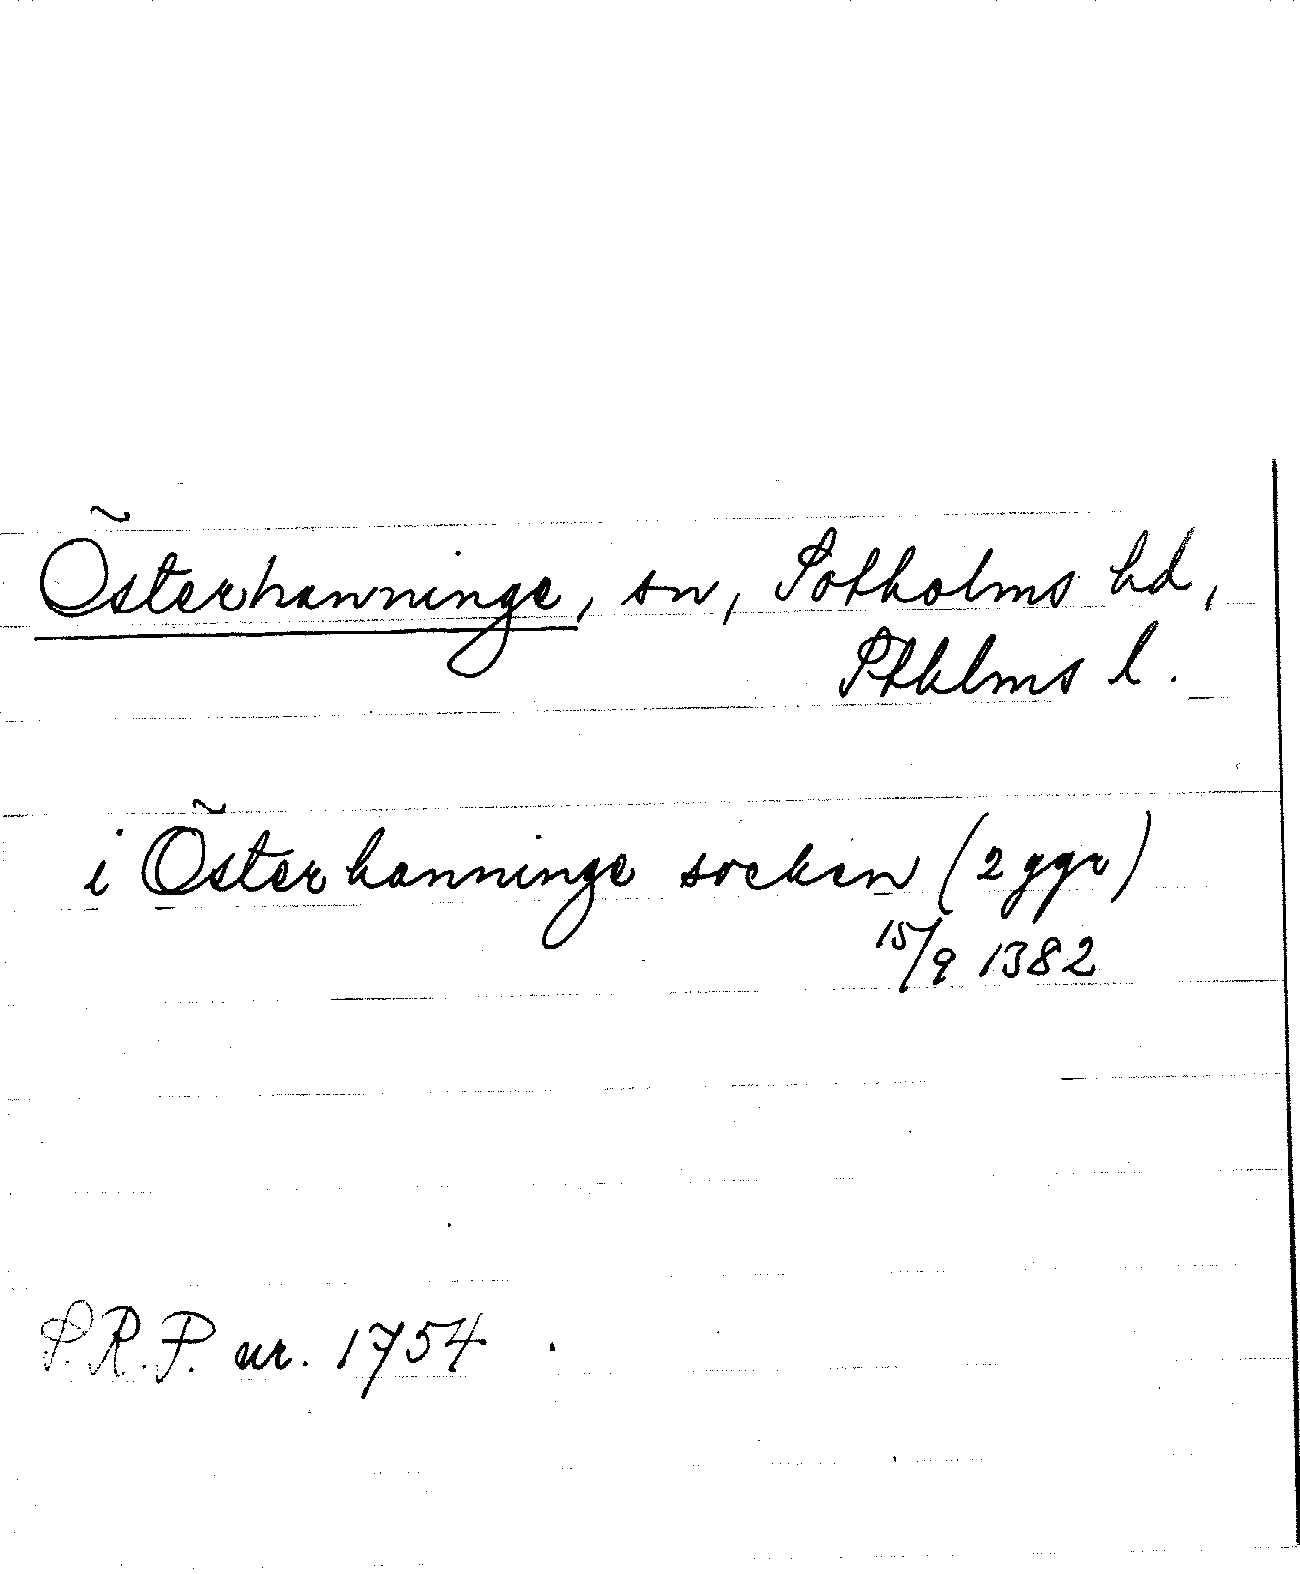 Österhanninge, sn, Sotholms hd,
Sthlms l.
i Österhanninge socken (2 ggr)
15/9 1382
S.R.P. nr. 1754